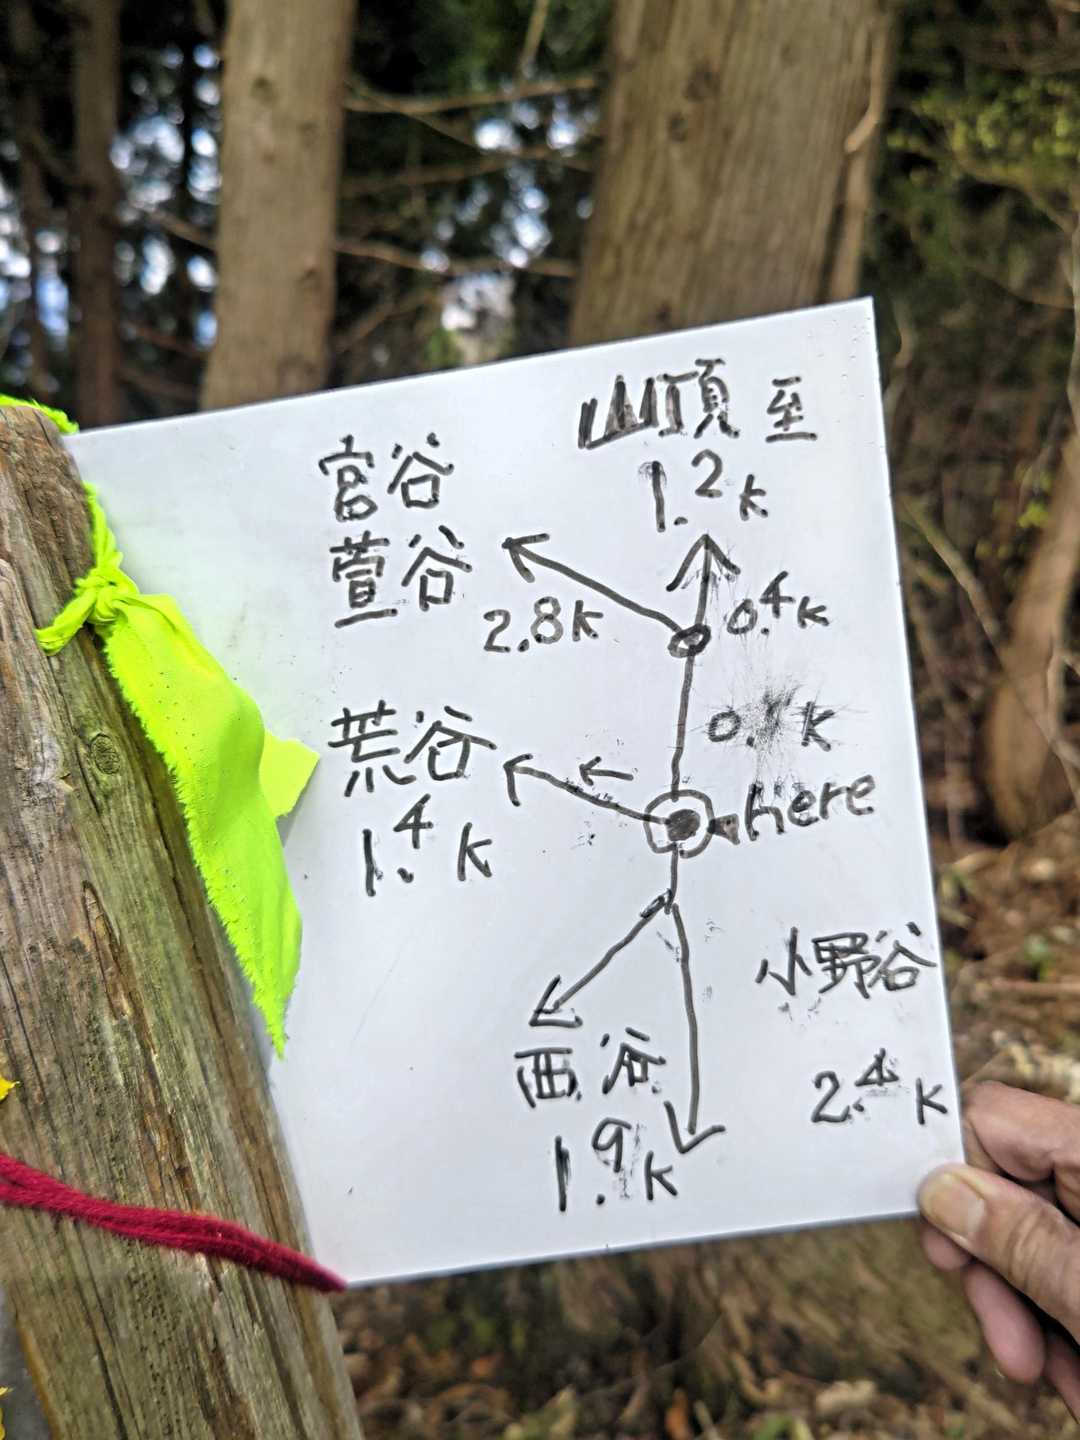 山頂 至
1.2k
宮谷
萱谷
2.8k
0.4k
荒谷
1.4k
here
小野谷
2.4k
西谷
1.9k